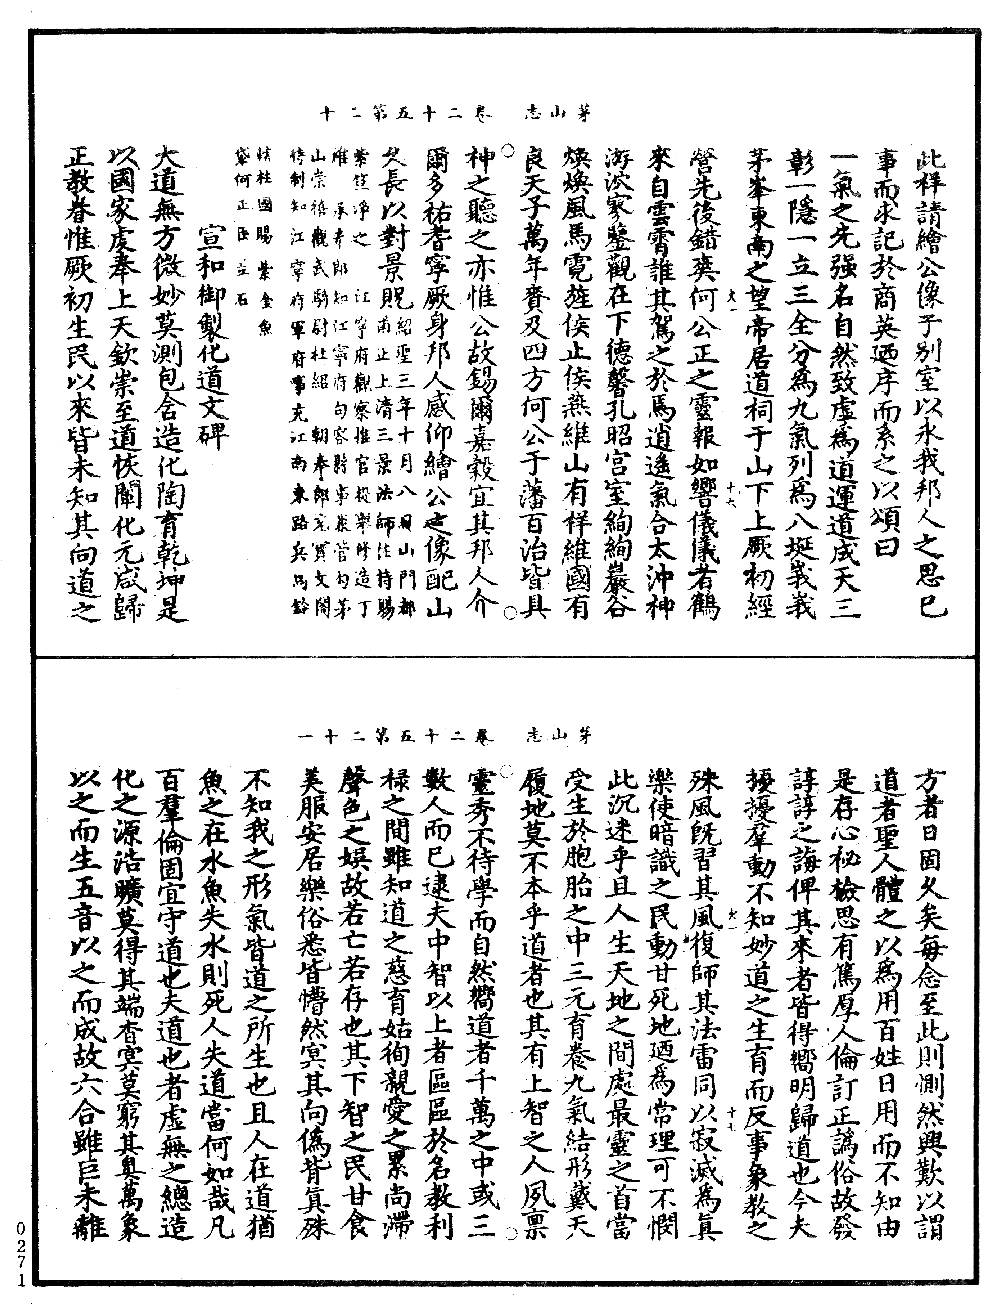 茅山志 卷二十五第二十
此祥請繪公像于別室以永我邦人之思已
事而求記於商英迺序而系之以頌曰
一氣之先強名自然致虛爲道運道成天三
彰一隱一立三全分爲九氣列爲八埏峩峩
茅峯東南之望帝居道祠于山下上厥初經
營先後錯奕何公正之靈報如響儀儀者鶴
來自雲霄誰其駕之於焉逍遙氣合太沖神
游泬寥鑒觀在下德馨孔昭宮室絢絢巖谷
煥煥風馬霓旌俟止俟燕維山有祥維國有
良天子萬年賚及四方何公于藩百治皆具
神之聽之亦惟公故錫爾嘉穀宜其邦人介
爾多祐耆寧厥身邦人感仰繪公之像配山
久長以對景貺紹聖三年十月八日山門都
江南止上清三景法師住持賜
紫笪淨之 江寧府觀察推官權樂修造丁
惟 承奉郎知江寧府句容縣事裴管句茅
山崇禧觀武騎尉杜紹 朝奉郎充寶文閣
待制知江寧府軍府事充江南東路兵馬鈐
轄杜國賜 紫金魚
袋何正臣立石
宣和御製化道文碑
大道無方微妙莫測包含造化陶育乾坤是
以國家虔奉上天欽崇至道恢闡化元咸歸
正教眷惟厥初生民以來皆未知其向道之
茅山志 卷二十五第二十一
方者日固久矣每念至此則惻然興歎以謂
道者聖人體之以爲用百姓日用而不知由
是存心祕檢思有篤厚人倫訂正譌俗故發
諄諄之誨俾其來者皆得嚮明歸道也今夫
擾擾羣動不知妙道之生育而反事象教之
殊風旣習其風復師其法雷同以寂滅爲眞
樂使暗識之民動甘死地迺爲常理可不憫
此沉迷乎且人生天地之間處最靈之首當
受生於胞胎之中三元育養九氣結形戴天
履地莫不本乎道者也其有上智之人夙禀
靈秀不待學而自然嚮道者千萬之中或三
數人而已逮夫中智以上者區區於名教利
祿之間雖知道之慈育姑徇親愛之累尚滯
聲色之娛故若亡若存也其下智之民甘食
美服安居樂俗悉皆懵然冥其向僞背眞殊
不知我之形氣皆道之所生也且人在道猶
魚之在水魚失水則死人失道當何如哉凡
百羣倫固宜守道也夫道也者虛無之總造
化之源浩曠莫得其端杳冥莫窮其奧萬象
以之而生五音以之而成故六合雖巨未離
0271